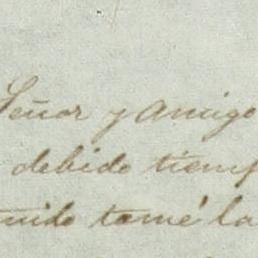 Señor y amigo
debido tiemp
tomé la